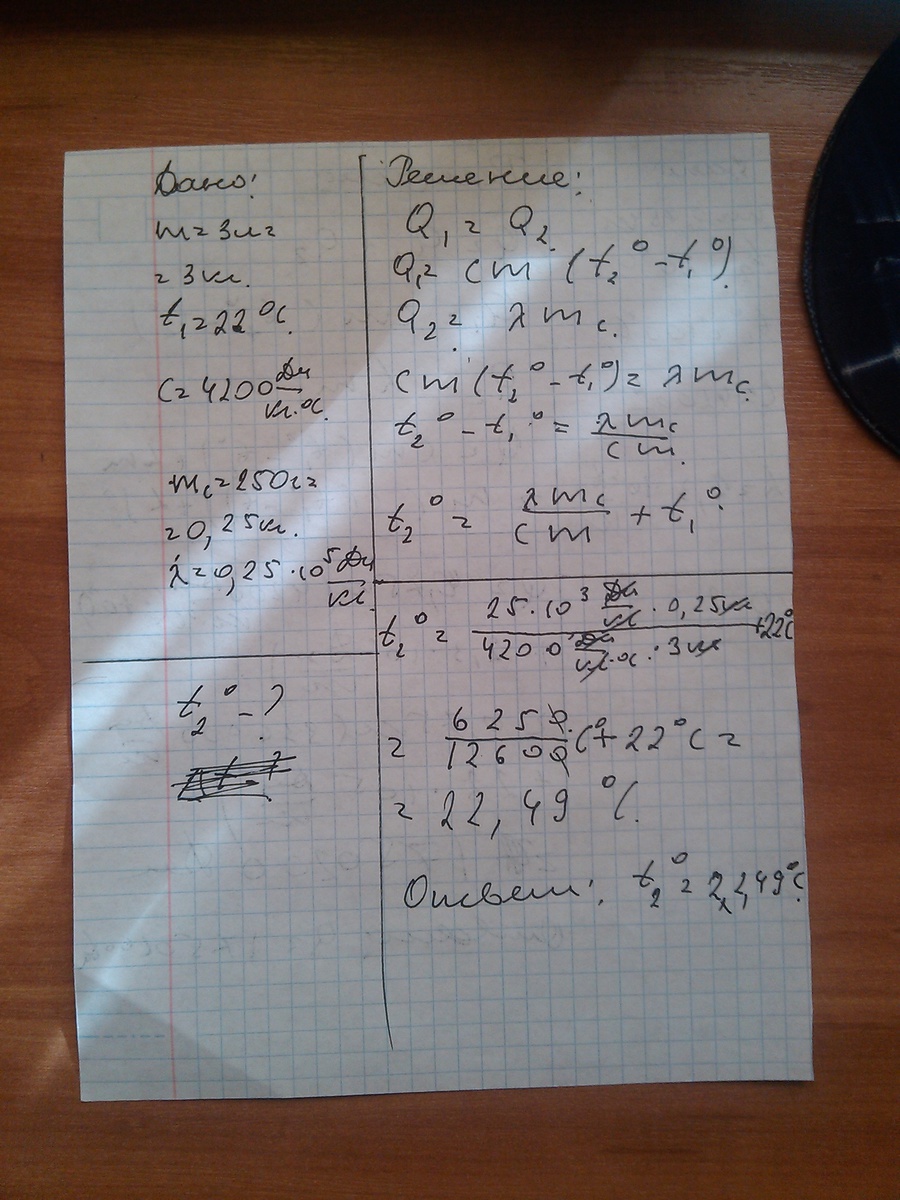 Дано:
m = 3л =
= 3кг.
t₁ = 22°C.
C = 4200 Дж/кг·°C.
m_c = 250г =
= 0,25кг.
λ = 0,25·10⁵ Дж/кг
t₂° - ?
Решение:
Q₁ = Q₂.
Q₁ = cm (t₂° - t₁°).
Q₂ = λm_c.
cm(t₂° - t₁°) = λm_c.
t₂° - t₁° = λm_c/cm.
t₂° = λm_c/cm + t₁°.
t₂° = 25·10³ Дж/кг · 0,25кг / 4200 Дж/кг·°C · 3кг + 22°C
= 6250/12600 C° + 22°C =
= 22,49 °C.
Ответ: t₂° = 22,49°C.